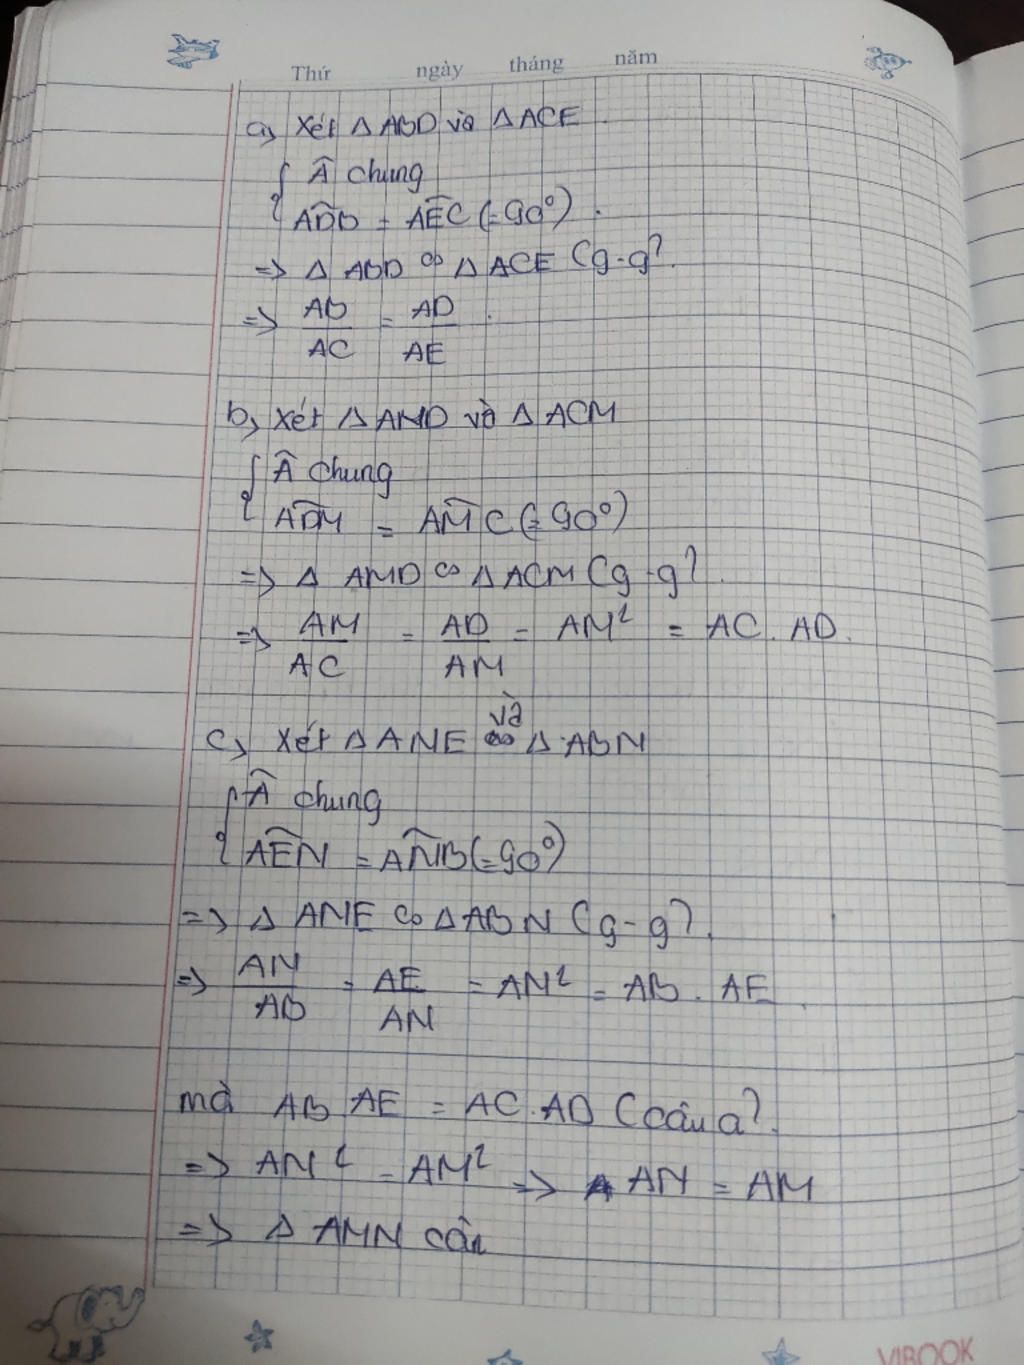 Thứ ngày tháng năm
a, Xét Δ ABD và Δ ACE.
 chung
ADB = AEC (=90°).
=> Δ ABD ∽ Δ ACE (g-g).
=> AB/AC = AD/AE.
b, Xét Δ AMD và Δ ACM
 chung
ADM = AMC (=90°)
=> Δ AMD ∽ Δ ACM (g-g).
=> AM/AC = AD/AM = AM² = AC. AD.
c, Xét Δ ANE và Δ ABN
 chung
AEN = ANB (=90°)
=> Δ ANE ∽ Δ ABN (g-g).
=> AN/AB = AE/AN = AN² = AB. AE.
mà AB AE = AC. AD (câu a).
=> AN² = AM² => AN = AM
=> Δ AMN cân
VIBOOK